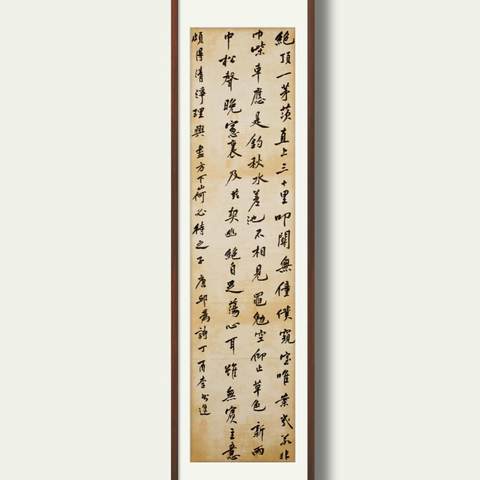 絕頂一茅茨直上三十里叩關無僮僕窺室唯案几若非
巾柴車應是釣秋水差池不相見黽勉空仰止草色新雨
中松聲晚窻裏及茲契幽絕自足蕩心耳雖無賓主意
頗得清淨理興盡方下山何必待之子 唐邱為詩丁酉李